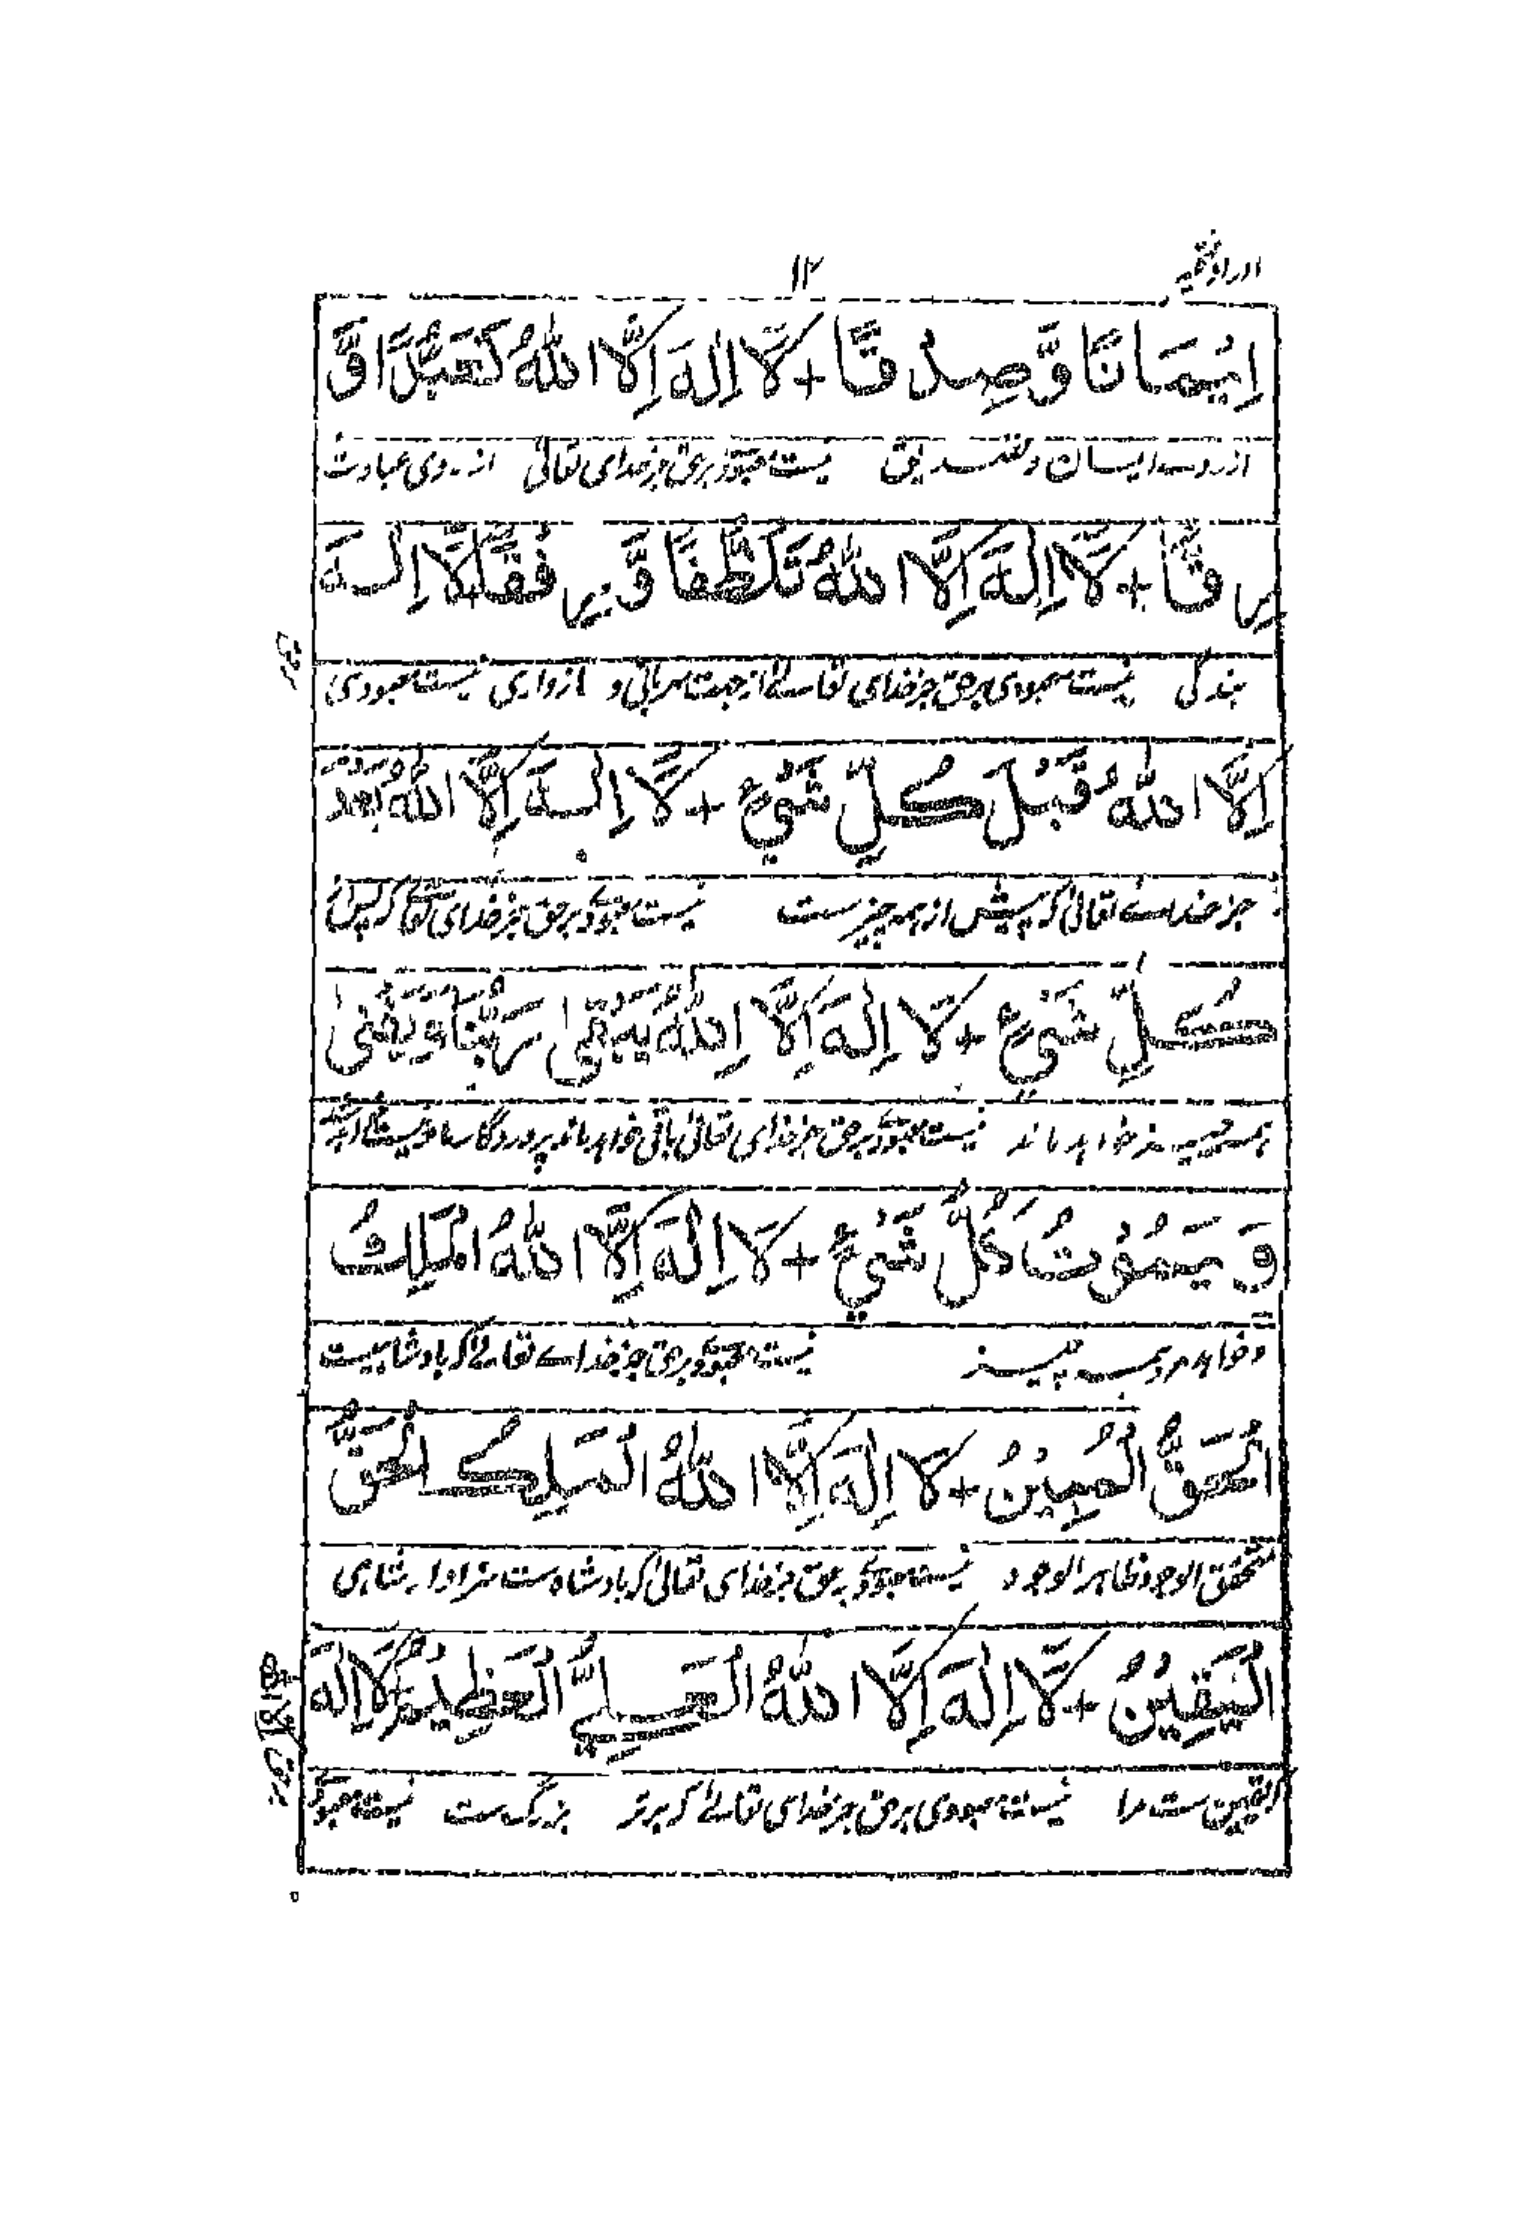 اوراد فتحیه
۱۲
اِيْمَانًا وَّصِدْقًا + لَآ اِلٰهَ اِلَّا اللّٰهُ تَعَبُّدًا وَّ
از روے ایمان و تصدیق نیست معبود برحق جز خدای تعالی از روی عبادت
رِقًّا + لَآ اِلٰهَ اِلَّا اللّٰهُ تَلَطُّفًا وَّرِفْقًا + لَآ اِلٰهَ
بندگی نیست معبودی برحق جز خدای تعالے از جهت مهربانی و نیست معبودی
اِلَّا اللّٰهُ قَبْلَ كُلِّ شَيْءٍ + لَآ اِلٰهَ اِلَّا اللّٰهُ بَعْدَ
جز خداے تعالی که پیش از همه چیزست نیست معبود برحق جز خدای تعالی که پس از
كُلِّ شَيْءٍ + لَآ اِلٰهَ اِلَّا اللّٰهُ يَبْقٰى رَبُّنَا وَيَفْنٰى
همه چیز خواهد ماند نیست معبود برحق جز خدای تعالی باقی خواهد ماند پروردگار ما
وَيَمُوْتُ كُلُّ شَيْءٍ + لَآ اِلٰهَ اِلَّا اللّٰهُ الْمَلِكُ
و خواهد مرد همه چیز نیست معبود برحق جز خداے تعالے که بادشاهیست
الْحَقُّ الْمُبِيْنُ + لَآ اِلٰهَ اِلَّا اللّٰهُ الْمَلِكُ الْحَقُّ
متحقق الوجود ظاهر الوجود نیست معبود برحق جز خدای تعالی که بادشاه ست سزاوار شاهی
الْيَقِيْنُ + لَآ اِلٰهَ اِلَّا اللّٰهُ الْعَلِيُّ الْعَظِيْمُ + لَآ اِلٰهَ
که یقین ست مرا نیست معبودی برحق جز خدای تعالے که برتر بزرگ ست نیست معبود